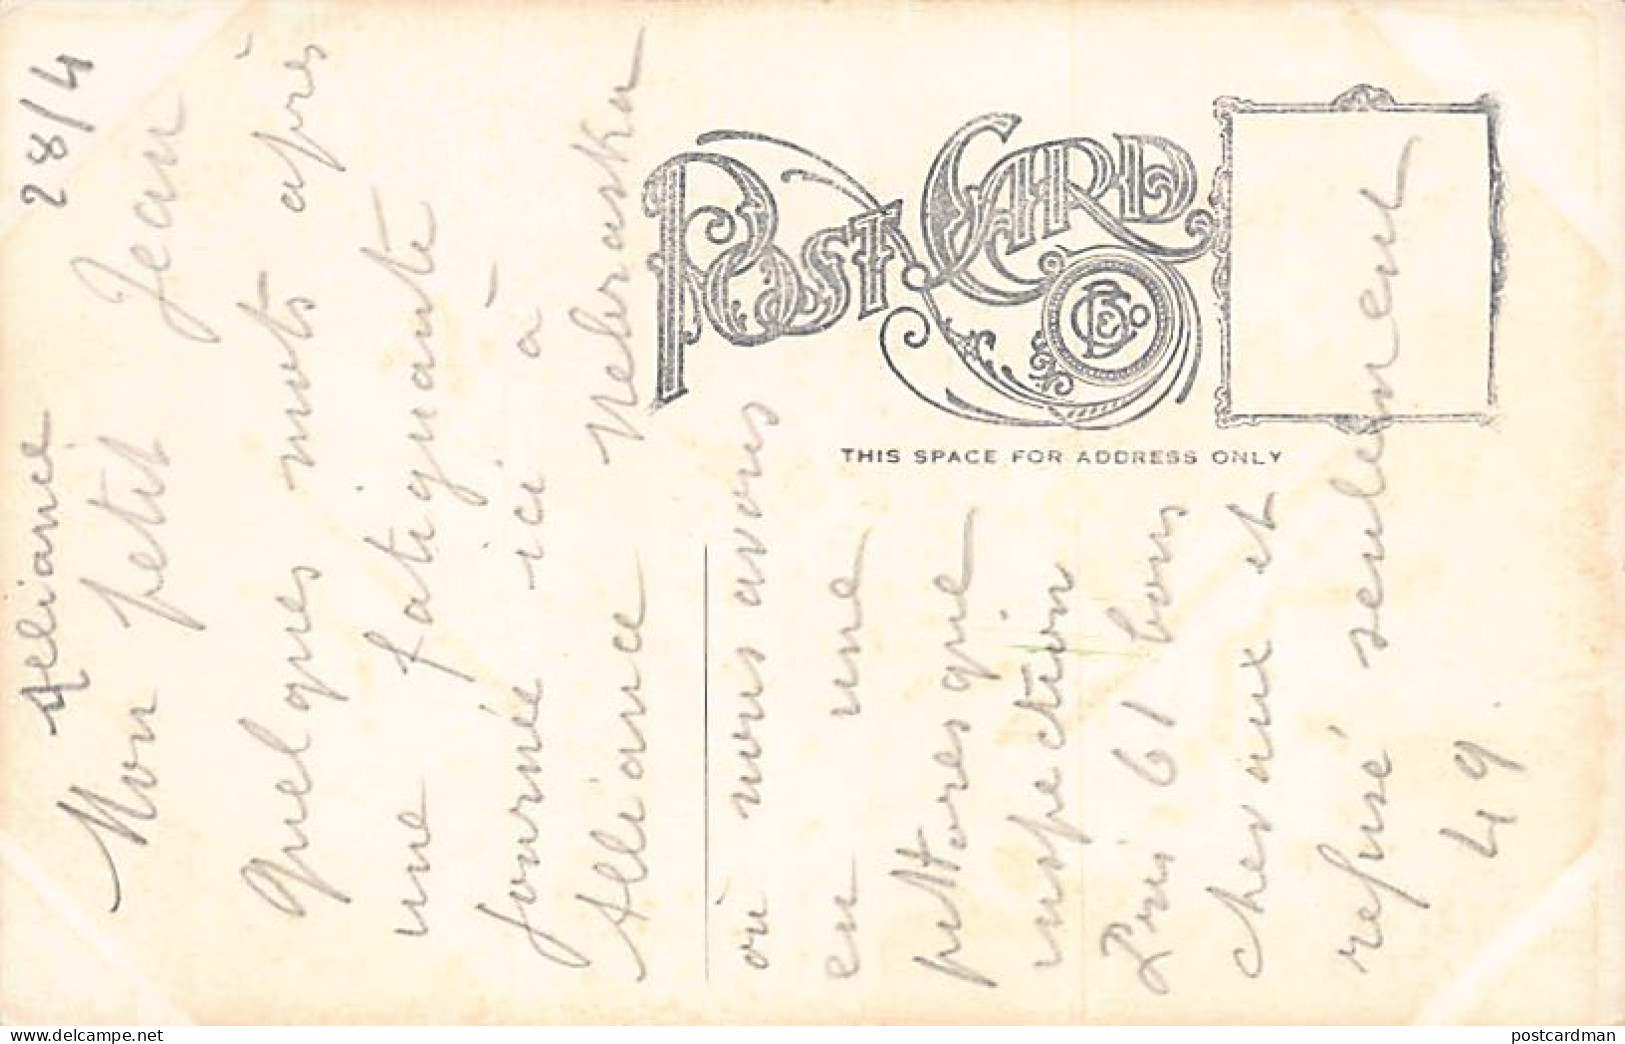 Alliance 28/4
Mon petit Jean
quelques mots après
une fatiguante
journée ici à
Alliance Nebraska
où nous avons
eu une
pittoresque
inspection
Pris 61 bons
chevaux et
refusé seulement
49
POST CARD
THIS SPACE FOR ADDRESS ONLY
www.delcampe.net
postcardman